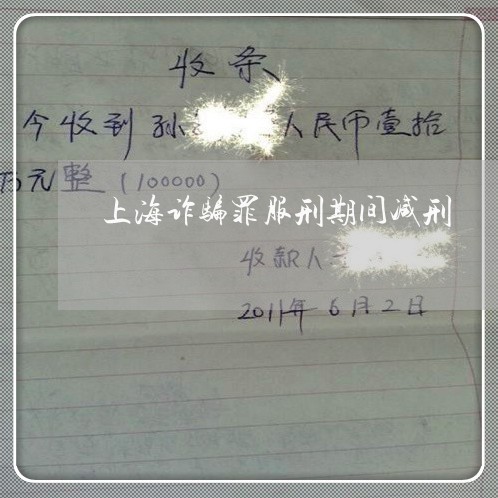 收条
今收到孙 人民币壹拾
万元整（100000）
上海诈骗罪服刑期间减刑
收款人
2011年6月2日